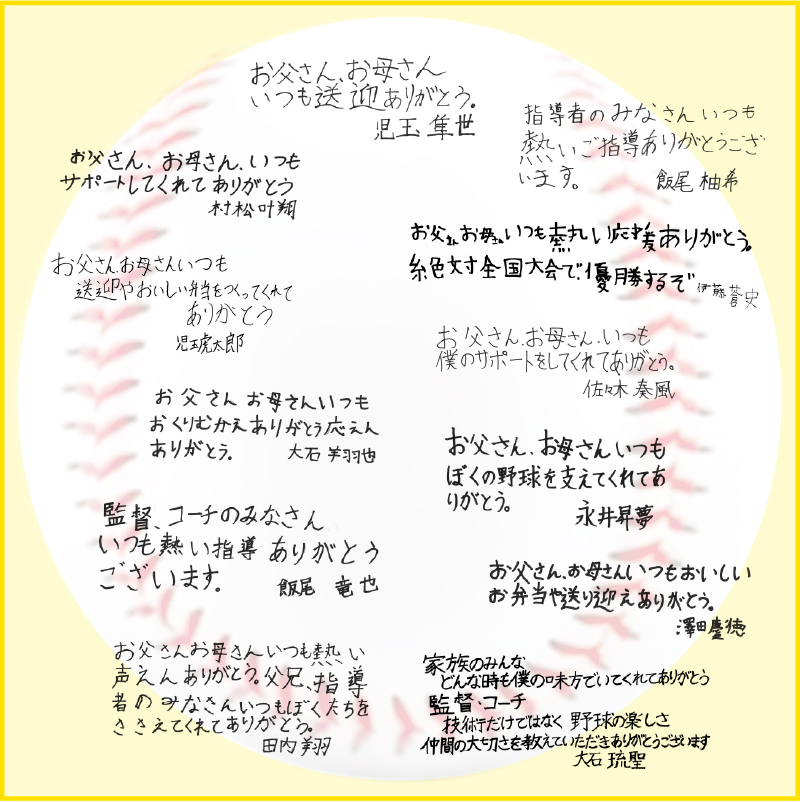 お父さん、お母さん
いつも送迎ありがとう。
児玉 隼世
指導者のみなさんいつも
熱いご指導ありがとうござ
います。
飯尾 柚希
お父さん、お母さん、いつも
サポートしてくれてありがとう
村松叶翔
お父さん、お母さん、いつも熱い応援ありがとう。
絶対全国大会で、優勝するぞ
伊藤 蒼史
お父さん、お母さんいつも
送迎やおいしい弁当をつくってくれて
ありがとう
児玉虎太郎
お父さん、お母さん、いつも
僕のサポートをしてくれてありがとう。
佐々木 奏風
お父さん お母さんいつも
おくりむかえありがとう応えん
ありがとう。
大石 美羽也
お父さん、お母さんいつも
ぼくの野球を支えてくれてあ
りがとう。
永井昇夢
監督、コーチのみなさん
いつも熱い指導 ありがとう
ございます。
飯尾 竜也
お父さん、お母さんいつもおいしい
お弁当や送り迎えありがとう。
澤田慶徳
お父さんお母さんいつも熱い
声えんありがとう。父兄、指導
者のみなさんいつもぼくたちを
ささえてくれてありがとう。
田内 翔
家族のみんな
どんな時も僕の味方でいてくれてありがとう
監督・コーチ
技術だけではなく 野球の楽しさ
仲間の大切さを教えていただきありがとうございます
大石 琉聖